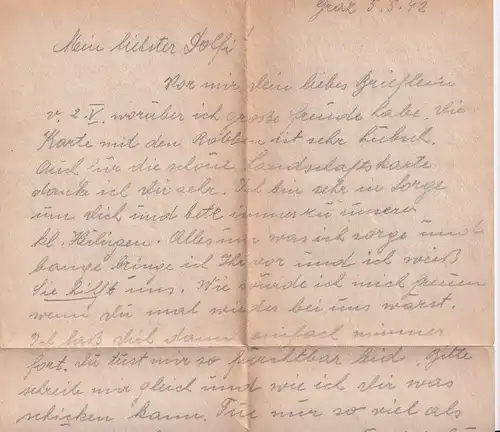 Graz 5.5.42
Mein liebster Dolfi!
Vor mir Dein liebes Brieflein
v. 2.V. worüber ich große Freude habe. Die
Karte mit den Robben ist sehr hübsch.
Auch für die schöne Landschaftskarte
danke ich Dir sehr. Ich bin sehr in Sorge
um Dich und bete immerzu unserer
kl. Heiligen. Alles um was ich sorge und
bange bringe ich Ihr vor und ich weiß
Sie hilft uns. Wie würde ich mich freuen
wenn Du mal wieder bei uns wärst.
Ich laß Dich dann einfach nimmer
fort. Du tust mir so furchtbar leid. Bitte
schreib mir gleich und wie ich Dir was
schicken kann. Tue nur so viel als